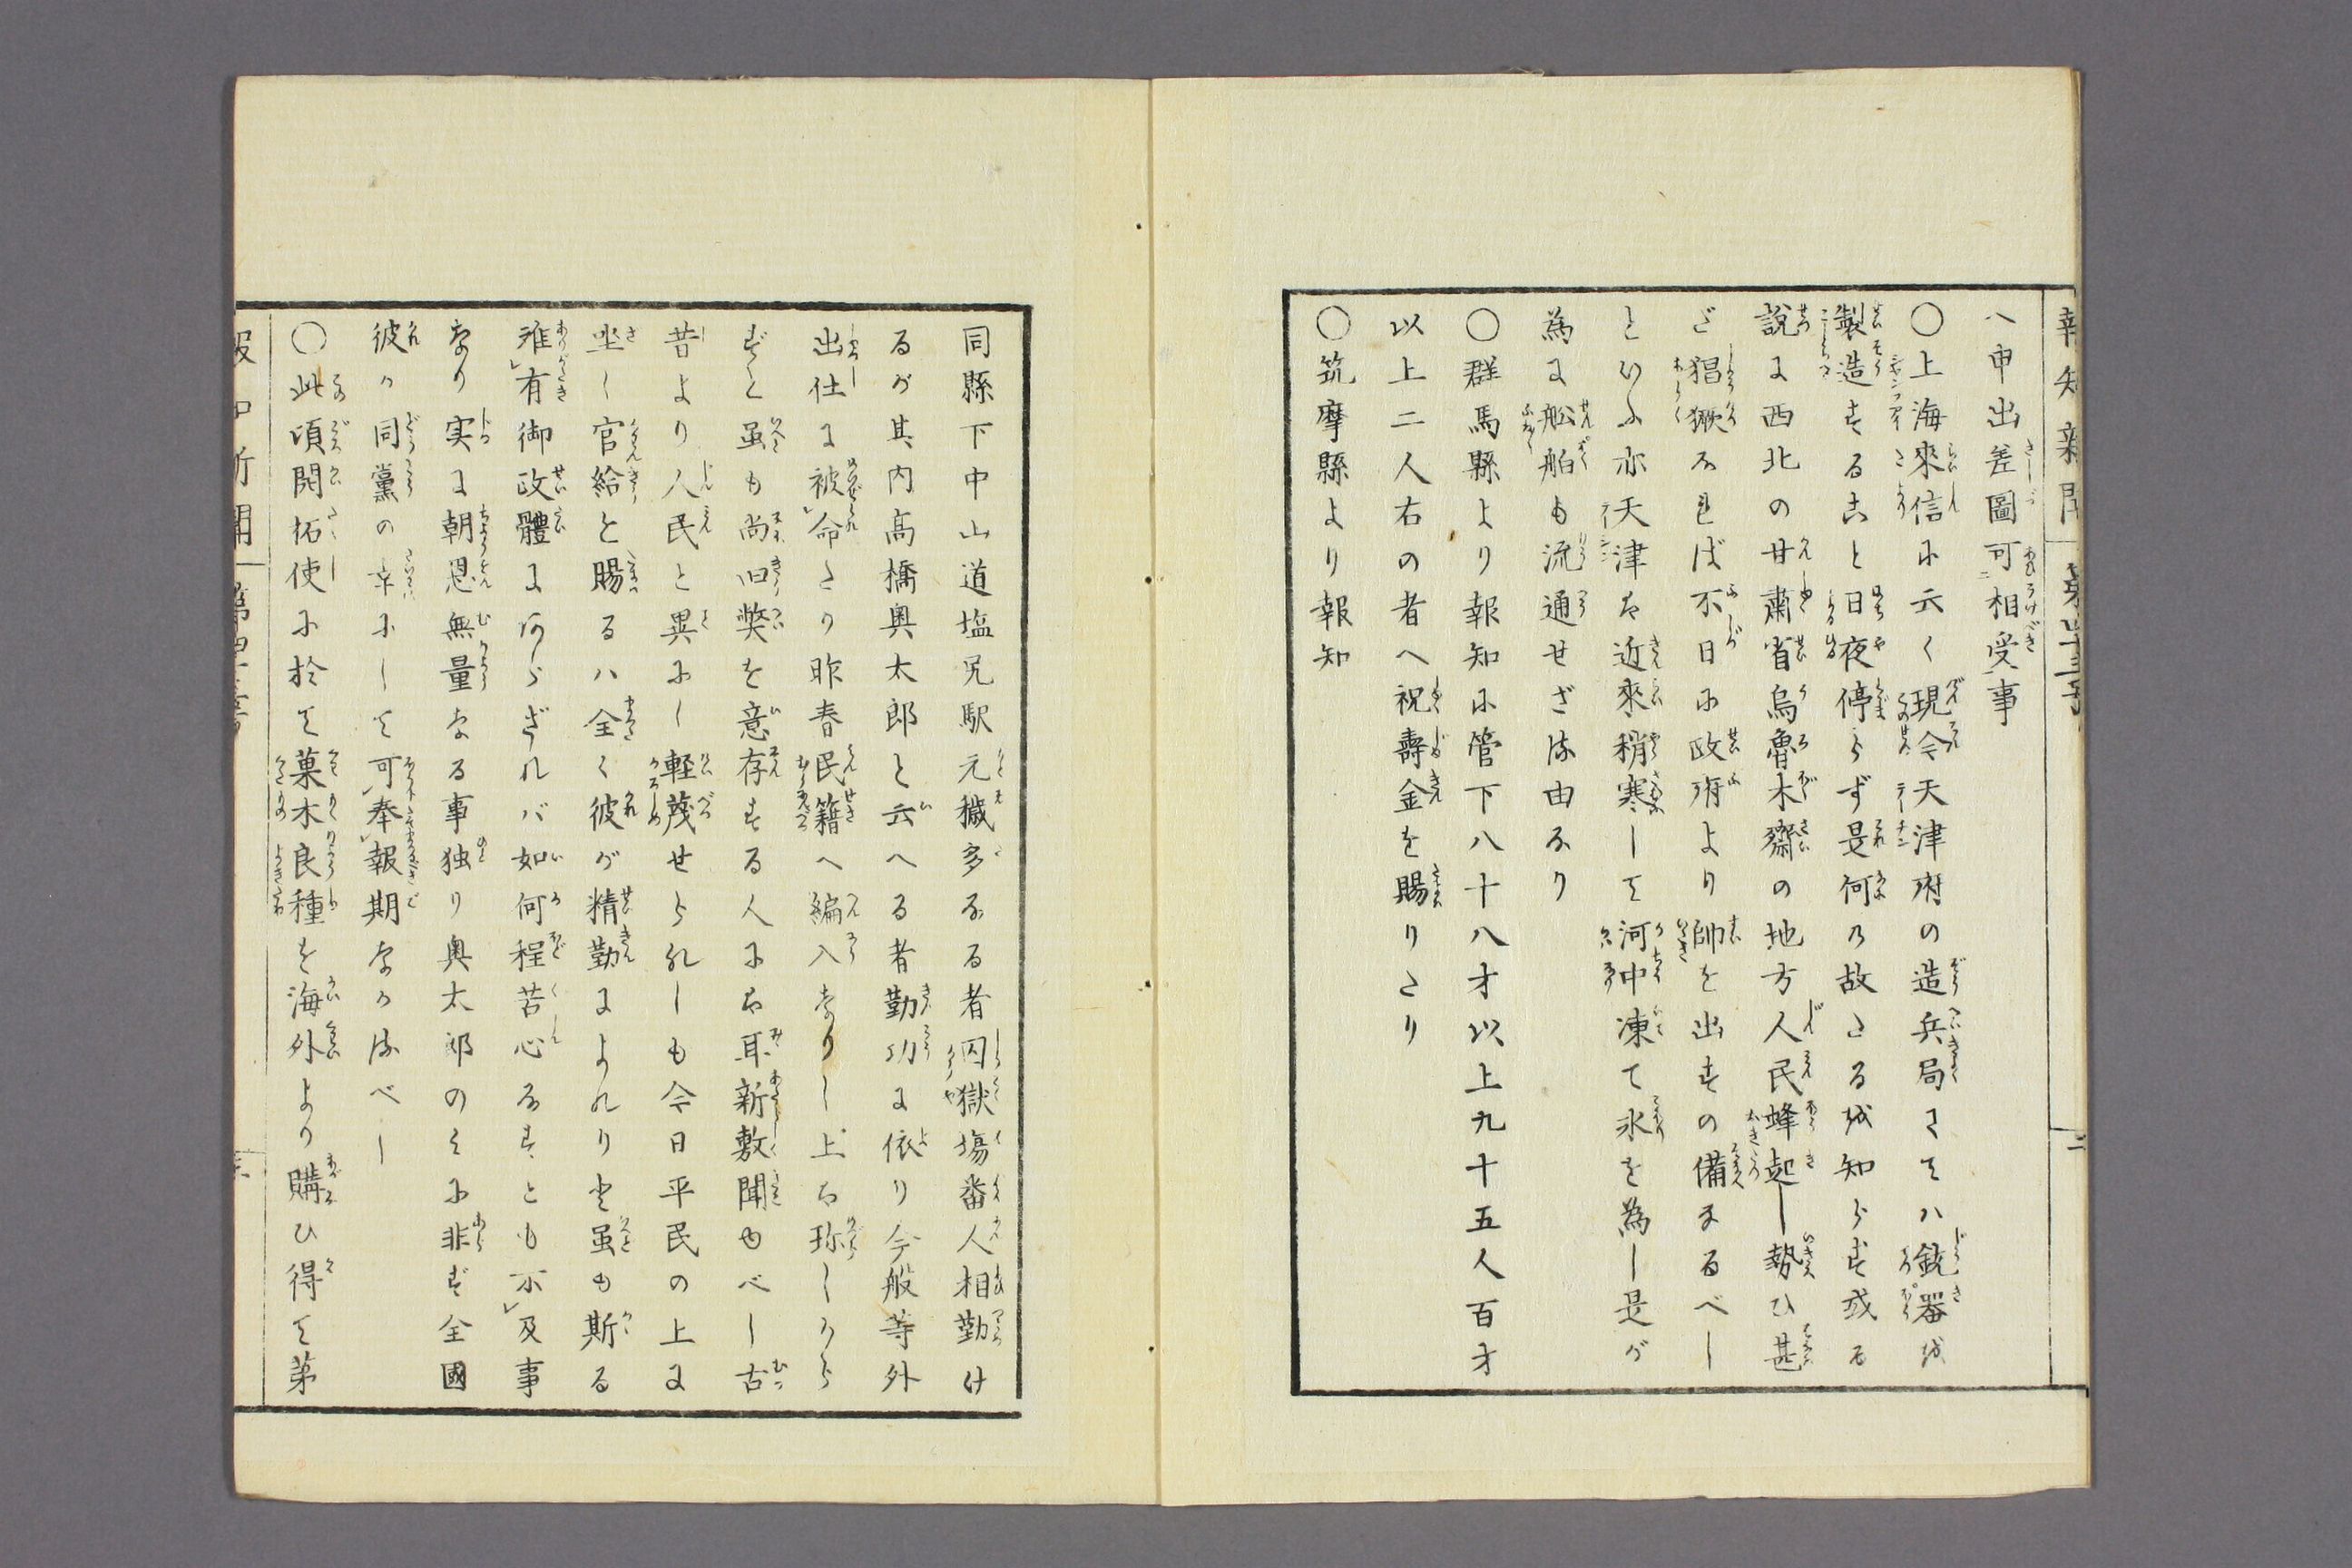 報知新聞 第四十三號 二
ハ申出差圖可相受事
○上海來信に云く現今天津府の造兵局にてハ銃器を
製造すること日夜停らず是何の故たるを知らず或る
説に西北の甘肅省烏魯木齋の地方人民蜂起し勢ひ甚
だ猖獗なれば不日に政府より帥を出すの備まるべし
といふ亦天津は近來稍寒して河中凍て氷を為し是が
為に舩舶も流通せざる由なり
○群馬縣より報知に管下八十八才以上九十五人百才
以上二人右の者へ祝壽金を賜りたり
○筑摩縣より報知
同縣下中山道塩尻駅元穢多なる者囚獄塲番人相勤け
るが其内髙橋奥太郎と云へる者勤功に依り今般等外
出仕に被命たり昨春民籍へ編入なりし上は珎しから
ずと虽も尚旧獘を意存する人には耳新敷聞ゆべし古
昔より人民と異にし軽蔑せられしも今日平民の上に
坐し官給を賜るハ全く彼が精勤によれりと虽も斯る
難有御政體にあらざれバ如何程苦心なすとも不及事
なり実に朝恩無量なる事独り奥太郎のみに非ず全國
彼の同黨の幸にして可奉報期なかるべし
○此頃開拓使に於て菓木良種を海外より購ひ得て第
報知新聞 第四十三號